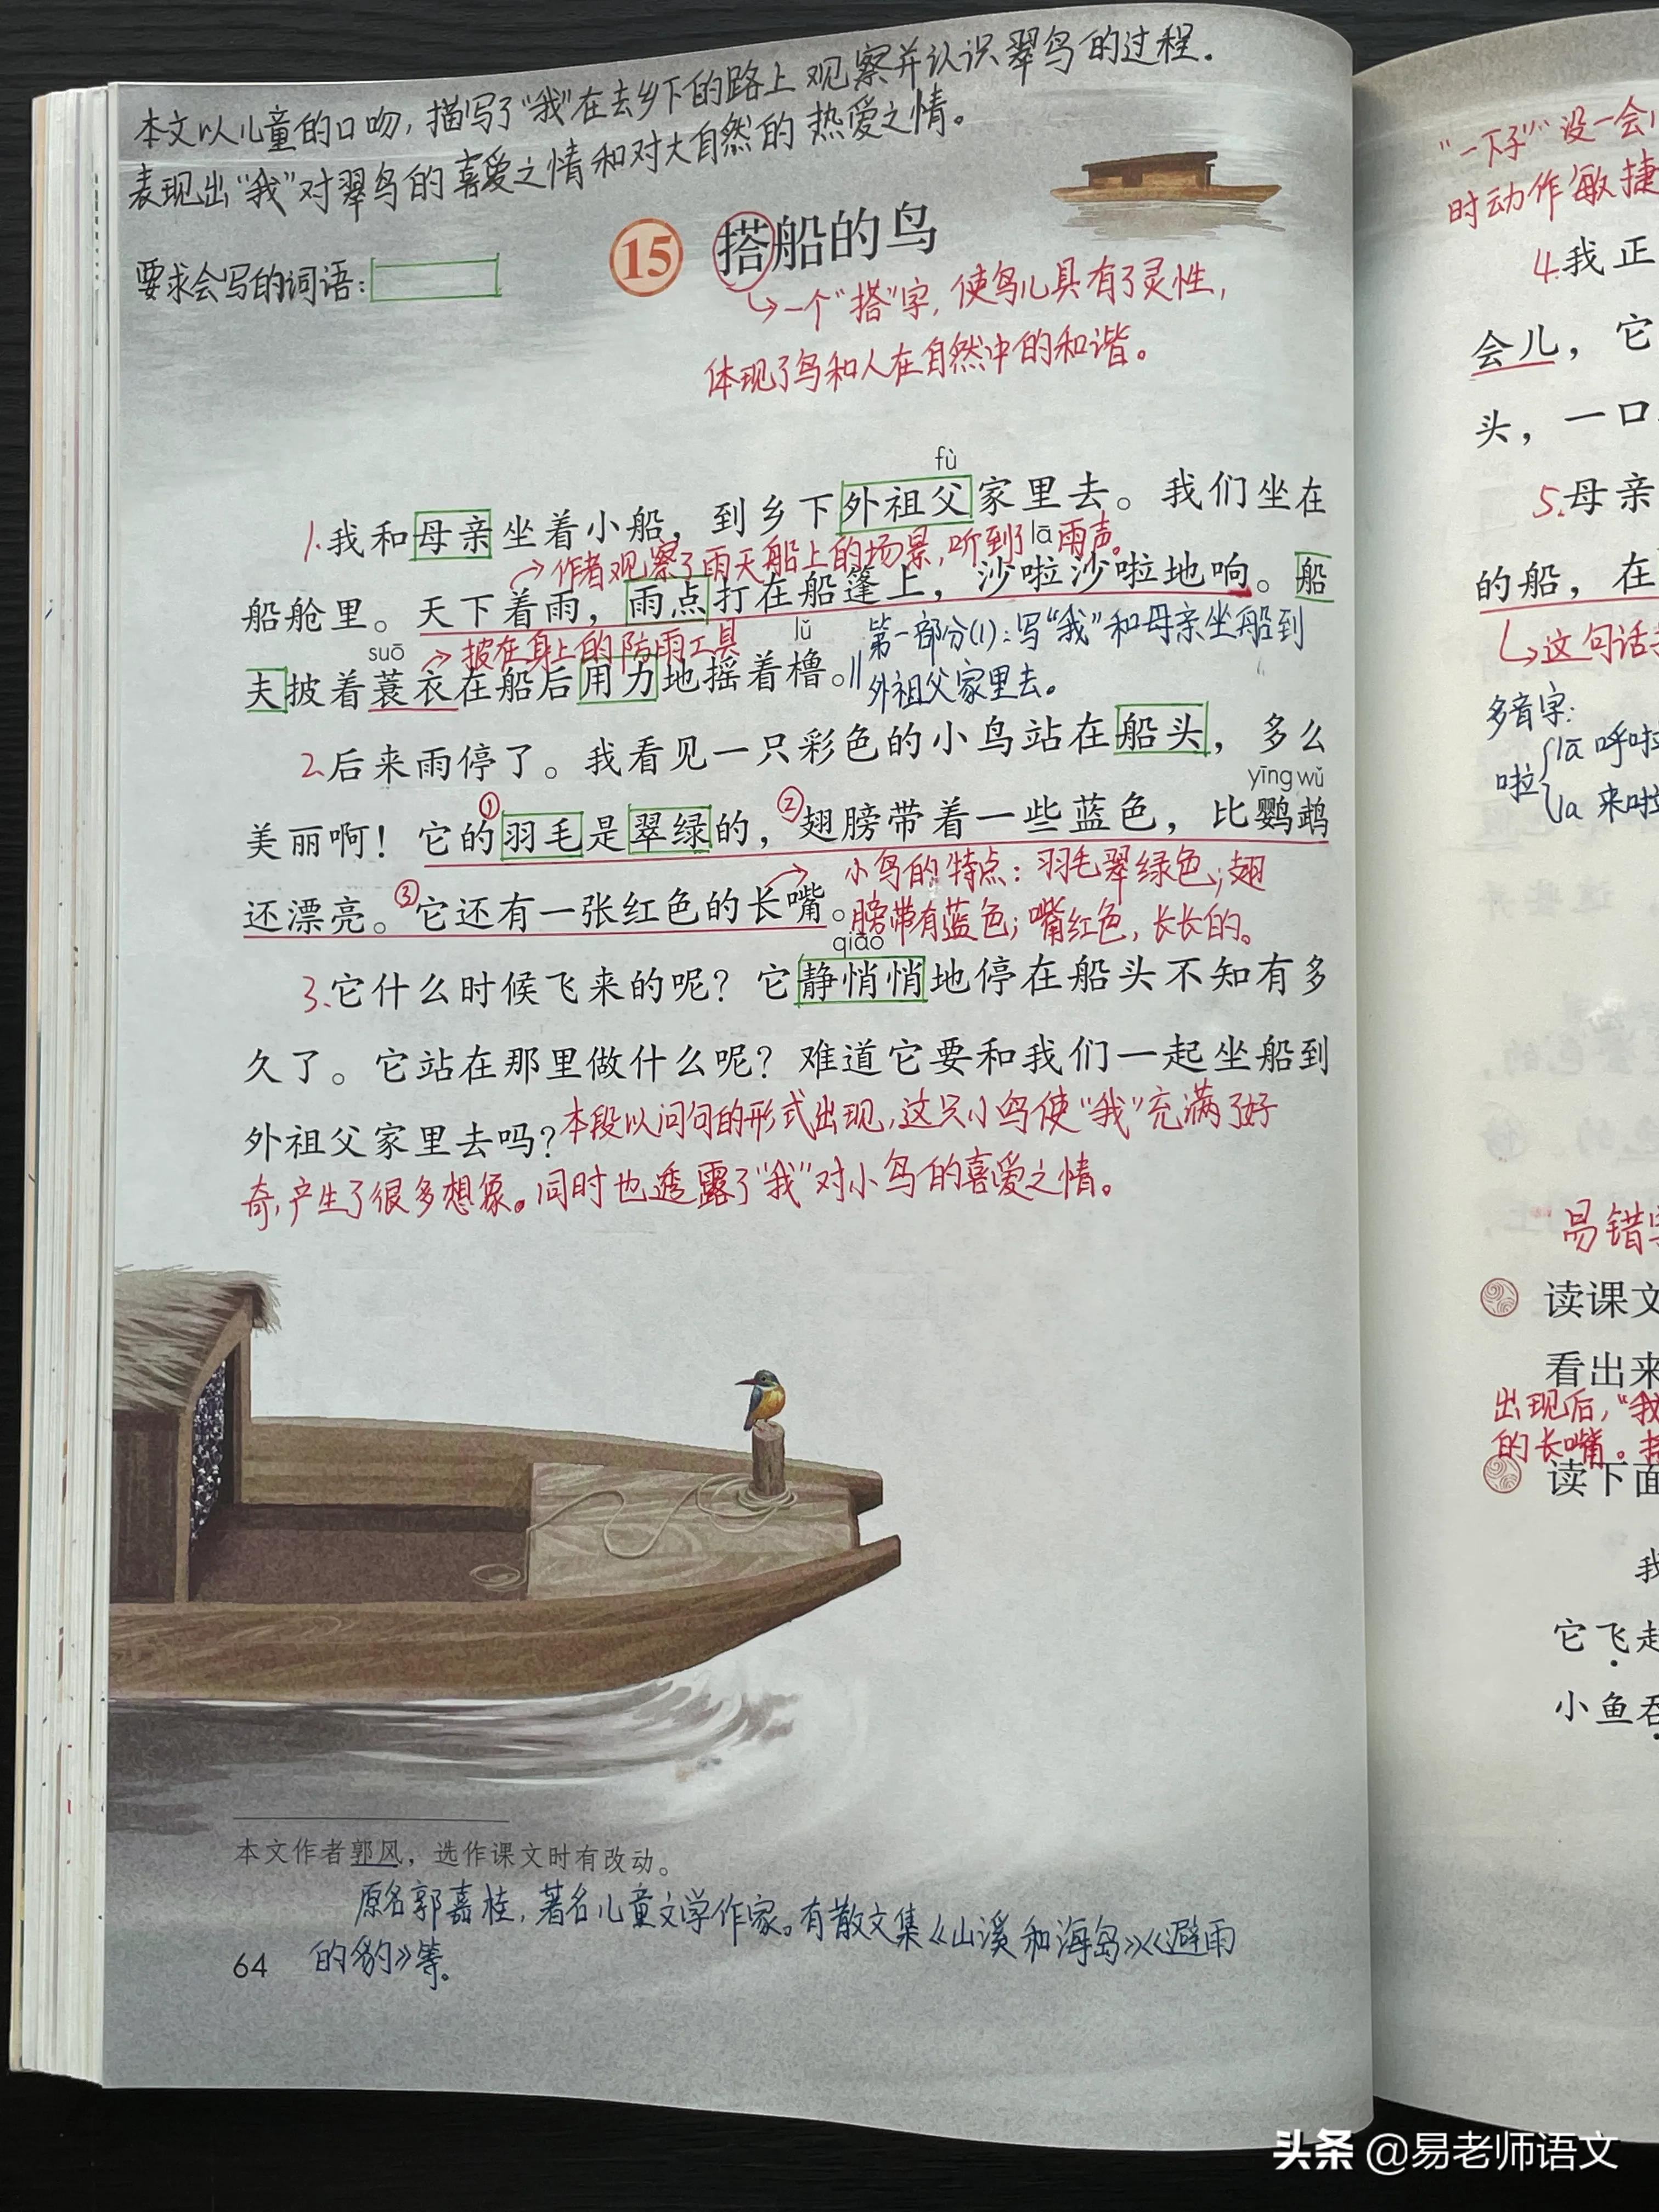 本文以儿童的口吻，描写了“我”在去乡下的路上观察并认识翠鸟的过程.
表现出“我”对翠鸟的喜爱之情和对大自然的热爱之情。
要求会写的词语：
15 搭船的鸟
一个“搭”字，使鸟儿具有了灵性，
体现了鸟和人在自然中的和谐。
fù
1.我和母亲坐着小船，到乡下外祖父家里去。我们坐在
作者观察了雨天船上的场景，听到了雨声。
lā
船舱里。天下着雨，雨点打在船篷上，沙啦沙啦地响。船
suō
披在身上的防雨工具
lǔ
夫披着蓑衣在船后用力地摇着橹。
第一部分(1)：写“我”和母亲坐船到
外祖父家里去。
2.后来雨停了。我看见一只彩色的小鸟站在船头，多么
yīng wǔ
美丽啊！①它的羽毛是翠绿的，②翅膀带着一些蓝色，比鹦鹉
还漂亮。③它还有一张红色的长嘴。
小鸟的特点：羽毛翠绿色；翅
膀带有蓝色；嘴红色，长长的。
qiāo
3.它什么时候飞来的呢？它静悄悄地停在船头不知有多
久了。它站在那里做什么呢？难道它要和我们一起坐船到
外祖父家里去吗？
本段以问句的形式出现，这只小鸟使“我”充满了好
奇，产生了很多想象。同时也透露了“我”对小鸟的喜爱之情。
本文作者郭风，选作课文时有改动。
原名郭嘉桂，著名儿童文学作家。有散文集《山溪和海岛》《避雨
的豹》等。
64
“一下子”“没一会儿
时动作敏捷
4.我正
会儿，它
头，一口
5.母亲
的船，在
这句话
多音字：
啦
lā 呼啦
la 来啦
易错字
读课文
看出来
出现后，“我
的长嘴。
读下面
我
它飞起
小鱼吞
头条 @易老师语文